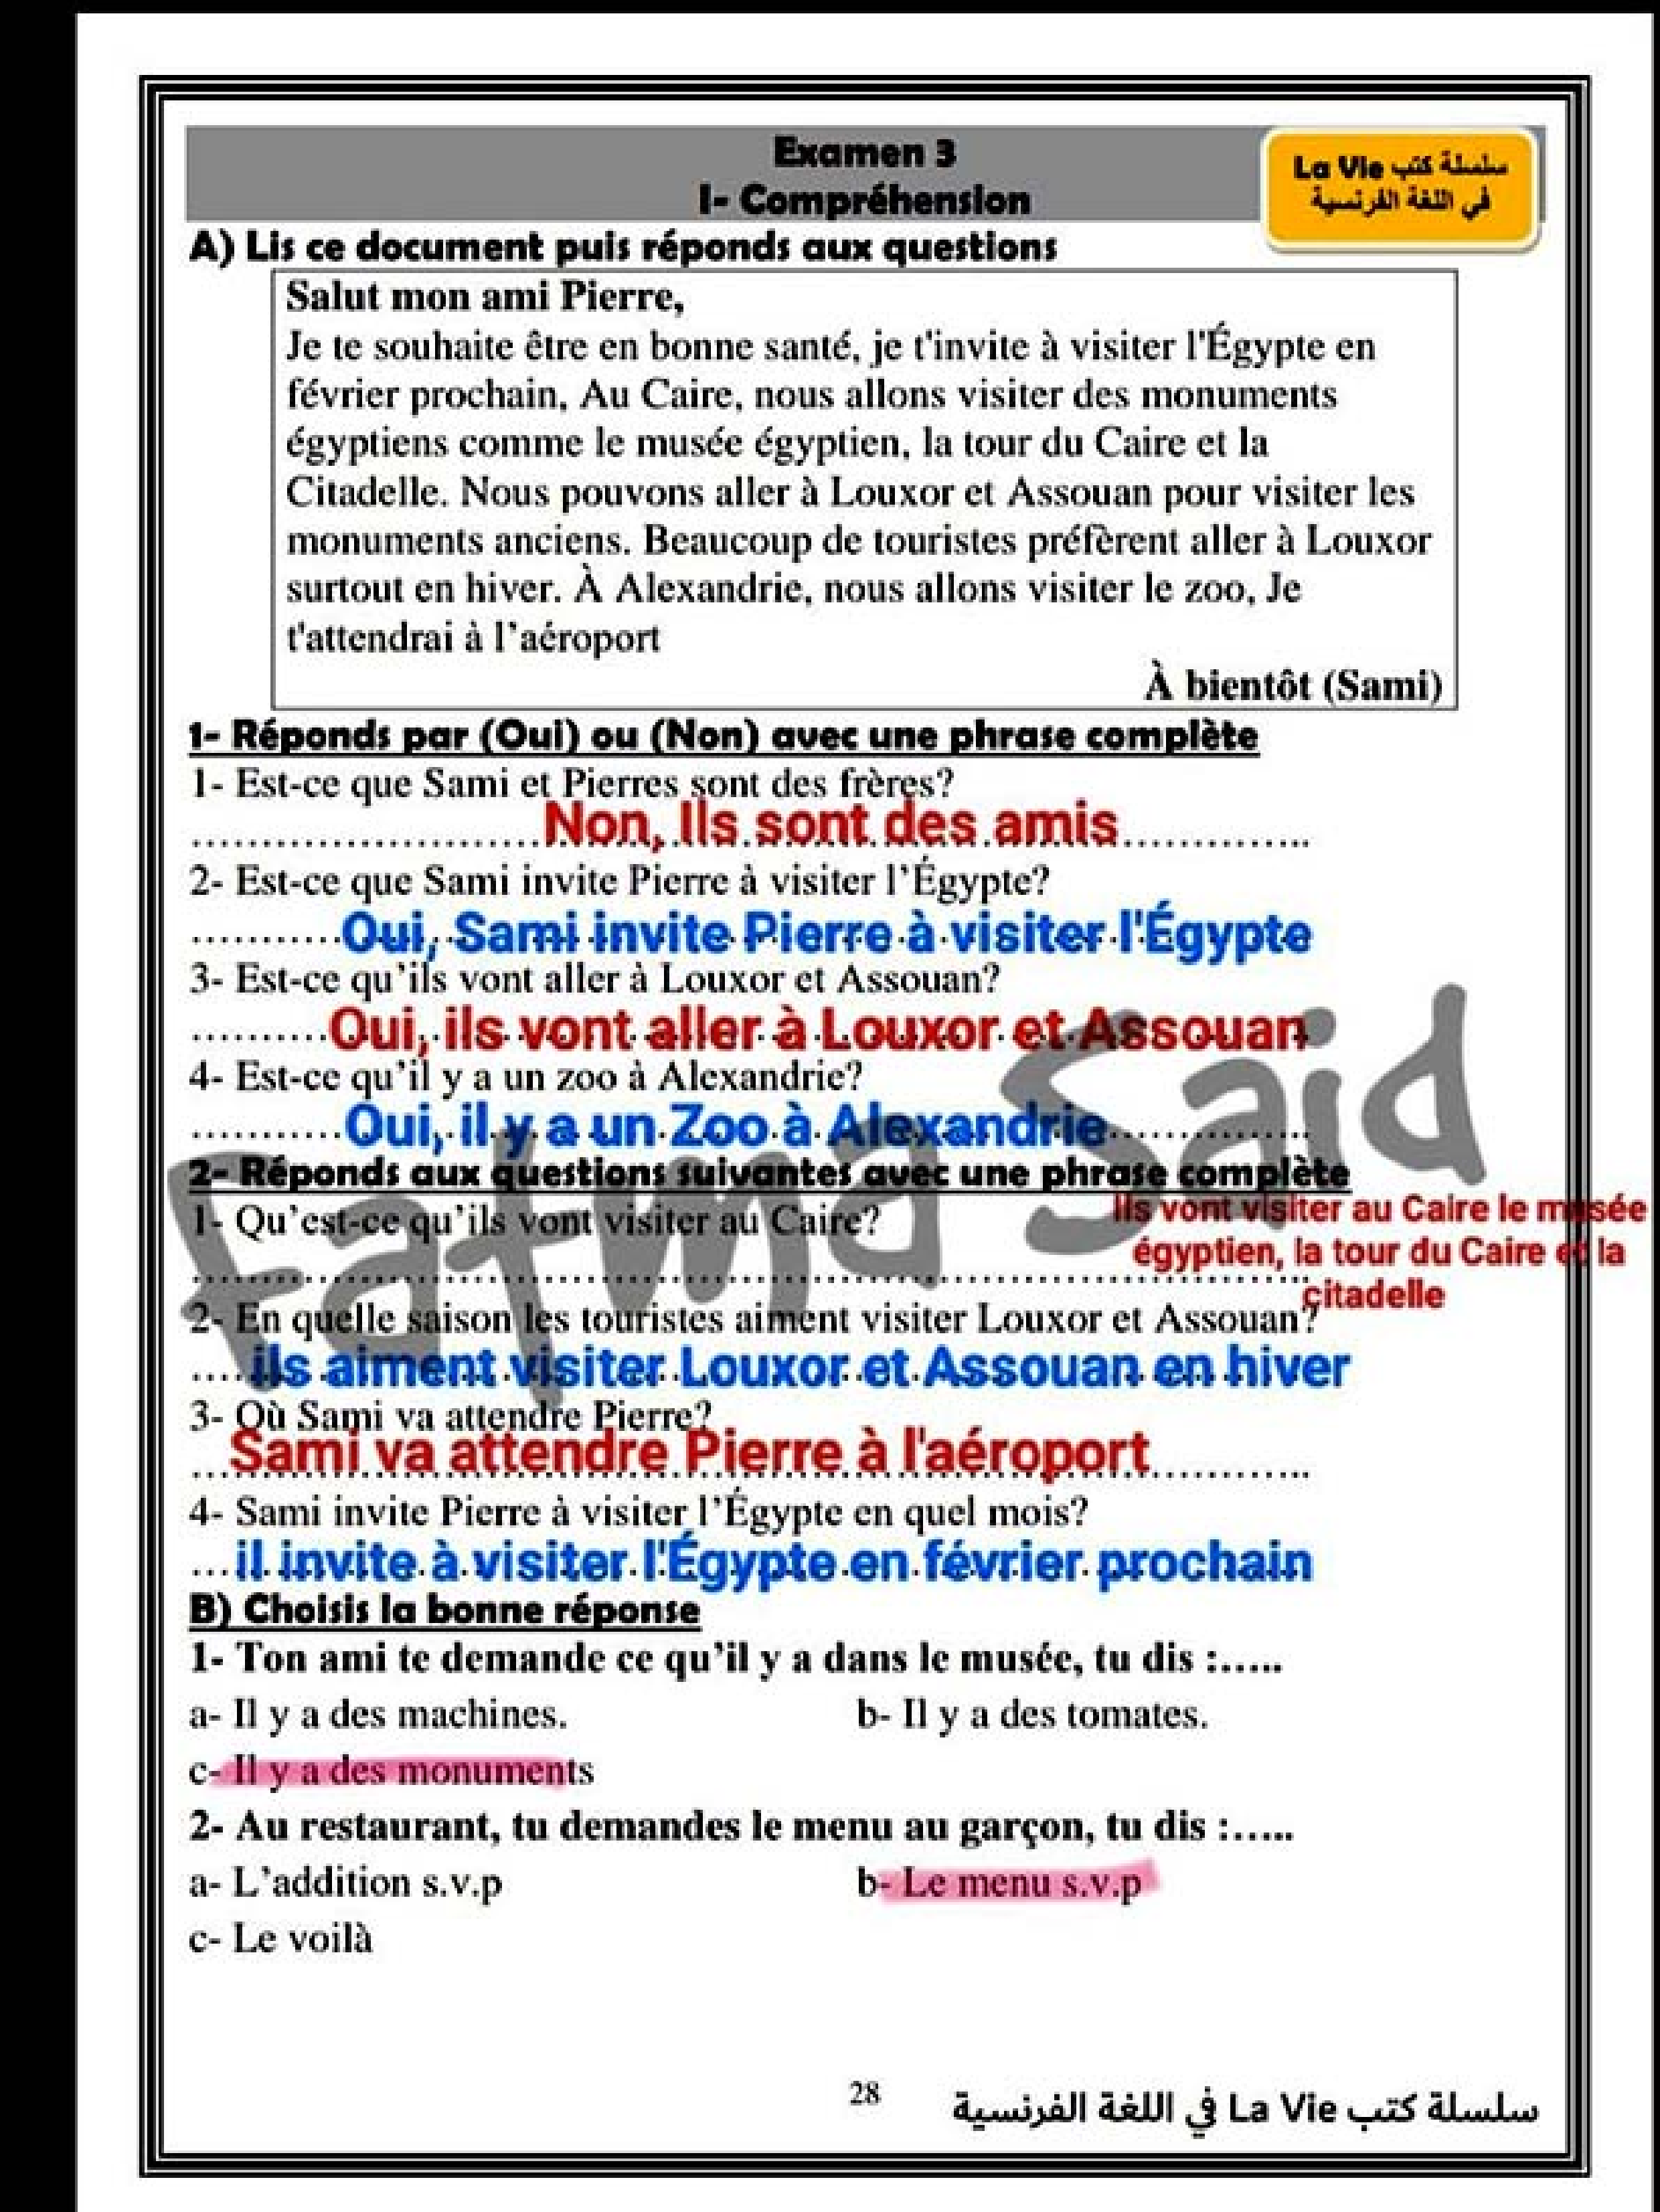 Examen 3
I- Compréhension
La Vie سلسلة كتب
في اللغة الفرنسية
A) Lis ce document puis réponds aux questions
Salut mon ami Pierre,
Je te souhaite être en bonne santé, je t'invite à visiter l'Égypte en
février prochain, Au Caire, nous allons visiter des monuments
égyptiens comme le musée égyptien, la tour du Caire et la
Citadelle. Nous pouvons aller à Louxor et Assouan pour visiter les
monuments anciens. Beaucoup de touristes préfèrent aller à Louxor
surtout en hiver. À Alexandrie, nous allons visiter le zoo, Je
t'attendrai à l'aéroport
À bientôt (Sami)
1- Réponds par (Oui) ou (Non) avec une phrase complète
1- Est-ce que Sami et Pierres sont des frères?
Non, Ils sont des amis
2- Est-ce que Sami invite Pierre à visiter l'Égypte?
Oui, Sami invite Pierre à visiter l'Égypte
3- Est-ce qu'ils vont aller à Louxor et Assouan?
Oui, ils vont aller à Louxor et Assouan
4- Est-ce qu'il y a un zoo à Alexandrie?
Oui, il y a un Zoo à Alexandrie
2- Réponds aux questions suivantes avec une phrase complète
1- Qu'est-ce qu'ils vont visiter au Caire?
Ils vont visiter au Caire le musée
égyptien, la tour du Caire et la
citadelle
2- En quelle saison les touristes aiment visiter Louxor et Assouan?
ils aiment visiter Louxor et Assouan en hiver
3- Où Sami va attendre Pierre?
Sami va attendre Pierre à l'aéroport
4- Sami invite Pierre à visiter l'Égypte en quel mois?
il invite à visiter l'Égypte en février prochain
B) Choisis la bonne réponse
1- Ton ami te demande ce qu'il y a dans le musée, tu dis :.....
a- Il y a des machines. b- Il y a des tomates.
c- Il y a des monuments
2- Au restaurant, tu demandes le menu au garçon, tu dis :.....
a- L'addition s.v.p b- Le menu s.v.p
c- Le voilà
Fatma Said
28 سلسلة كتب La Vie في اللغة الفرنسية